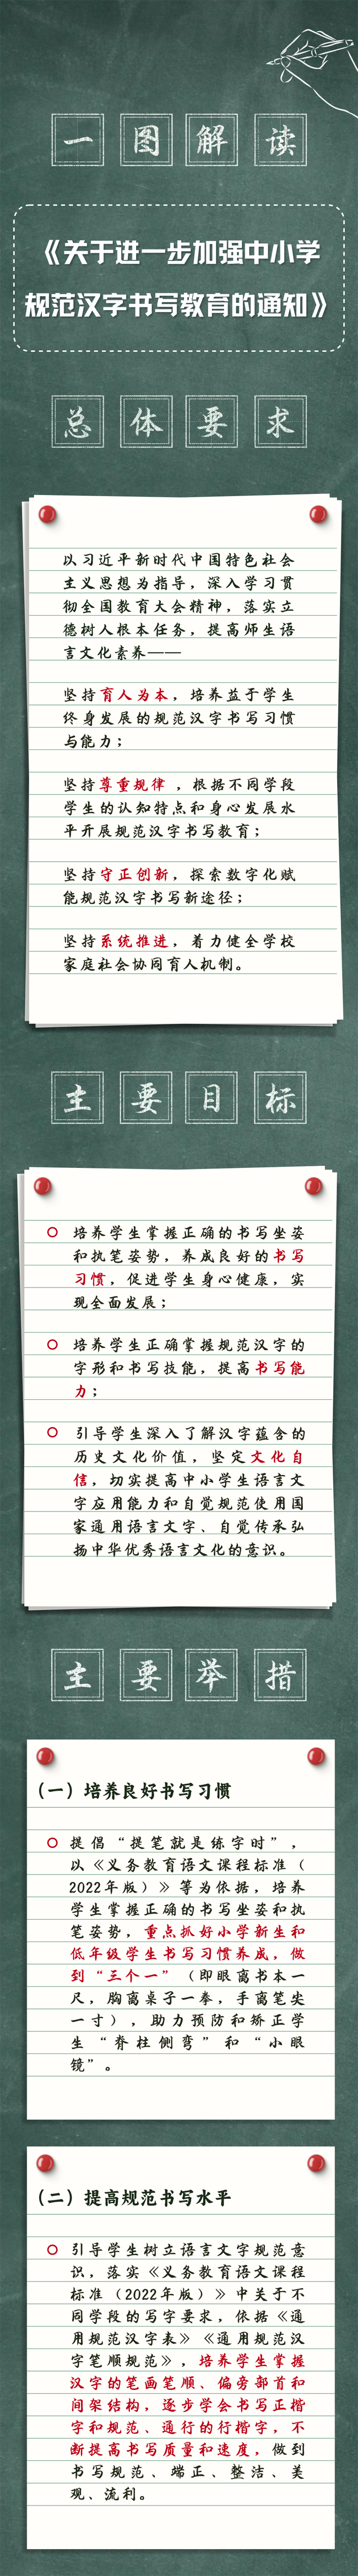 一图解读
《关于进一步加强中小学
规范汉字书写教育的通知》
总体要求
以习近平新时代中国特色社会
主义思想为指导，深入学习贯
彻全国教育大会精神，落实立
德树人根本任务，提高师生语
言文化素养——
坚持育人为本，培养益于学生
终身发展的规范汉字书写习惯
与能力；
坚持尊重规律，根据不同学段
学生的认知特点和身心发展水
平开展规范汉字书写教育；
坚持守正创新，探索数字化赋
能规范汉字书写新途径；
坚持系统推进，着力健全学校
家庭社会协同育人机制。
主要目标
培养学生掌握正确的书写坐姿
和执笔姿势，养成良好的书写
习惯，促进学生身心健康，实
现全面发展；
培养学生正确掌握规范汉字的
字形和书写技能，提高书写能
力；
引导学生深入了解汉字蕴含的
历史文化价值，坚定文化自
信，切实提高中小学生语言文
字应用能力和自觉规范使用国
家通用语言文字、自觉传承弘
扬中华优秀语言文化的意识。
主要举措
（一）培养良好书写习惯
提倡“提笔就是练字时”，
以《义务教育语文课程标准（
2022年版）》等为依据，培养
学生掌握正确的书写坐姿和执
笔姿势，重点抓好小学新生和
低年级学生书写习惯养成，做
到“三个一”（即眼离书本一
尺，胸离桌子一拳，手离笔尖
一寸），助力预防和矫正学
生“脊柱侧弯”和“小眼
镜”。
（二）提高规范书写水平
引导学生树立语言文字规范意
识，落实《义务教育语文课程
标准（2022年版）》中关于不
同学段的写字要求，依据《通
用规范汉字表》《通用规范汉
字笔顺规范》，培养学生掌握
汉字的笔画笔顺、偏旁部首和
间架结构，逐步学会书写正楷
字和规范、通行的行楷字，不
断提高书写质量和速度，做到
书写规范、端正、整洁、美
观、流利。